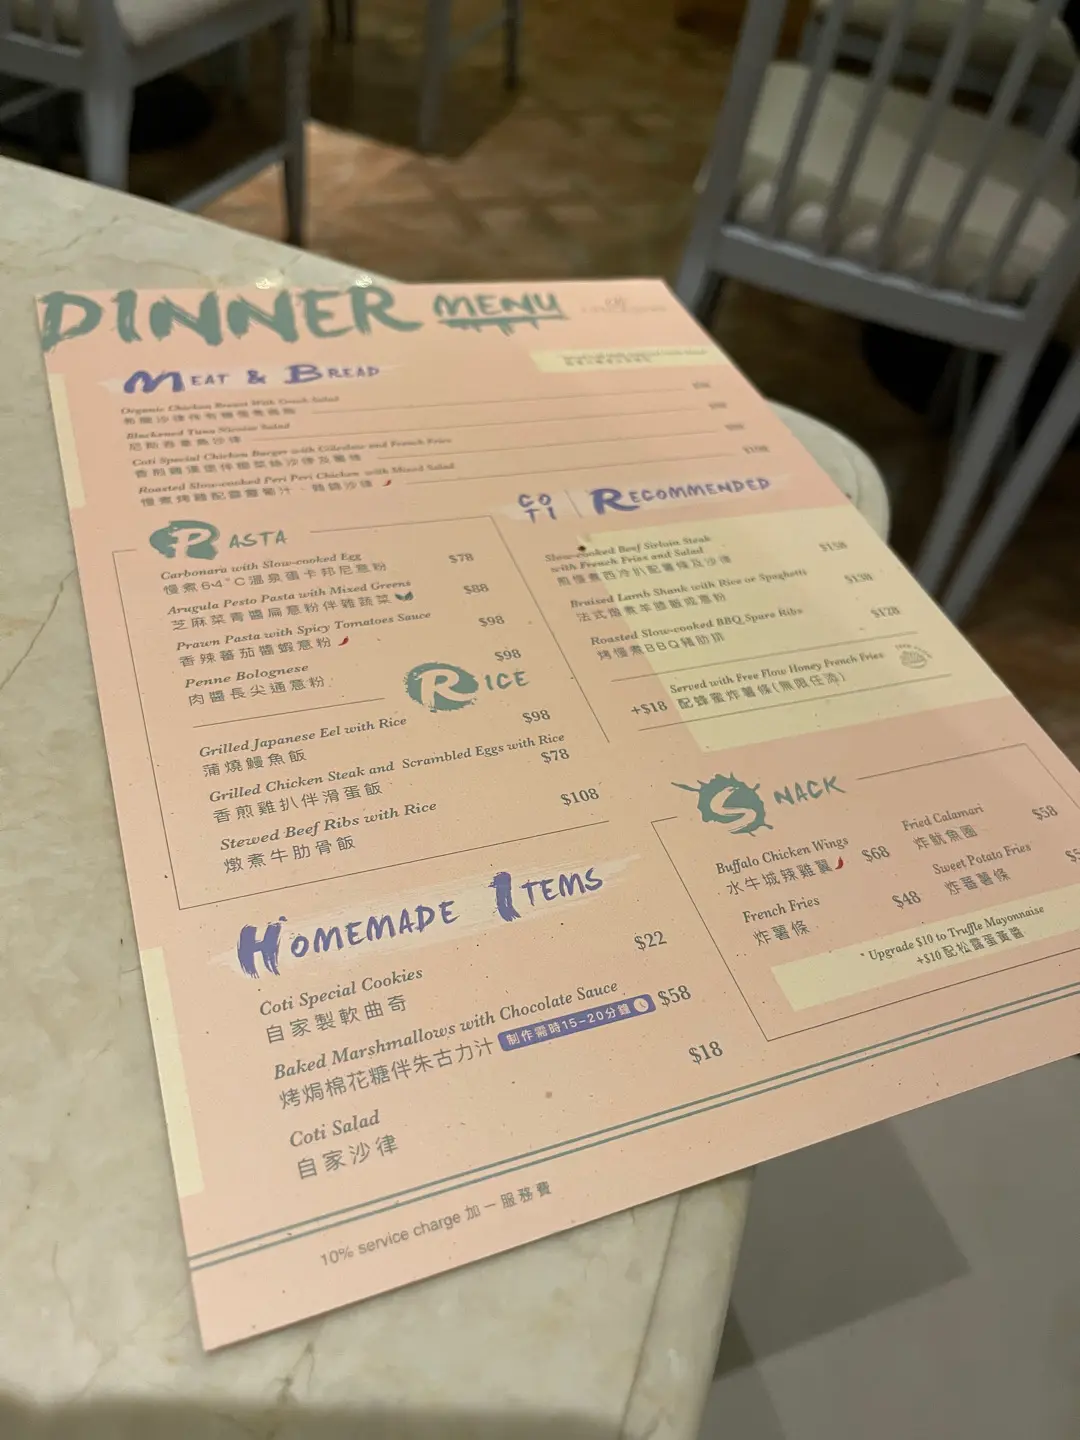 DINNER MENU
MEAT & BREAD
Organic Chicken Breast With Greek Salad
Blackened Tuna Nicoise Salad
尼斯吞拿魚沙律
Coti Special Chicken Burger with Coleslaw and French Fries
Roasted Slow-cooked Peri Peri Chicken with Mixed Salad
$108
PASTA
Carbonara with Slow-cooked Egg $78
慢煮64°C溫泉蛋卡邦尼意粉
Arugula Pesto Pasta with Mixed Greens $88
芝麻菜青醬扁意粉伴雜蔬菜
Prawn Pasta with Spicy Tomatoes Sauce $98
香辣蕃茄醬蝦意粉
Penne Bolognese $98
肉醬長尖通意粉
RICE
Grilled Japanese Eel with Rice $98
蒲燒鰻魚飯
Grilled Chicken Steak and Scrambled Eggs with Rice $78
香煎雞扒伴滑蛋飯
Stewed Beef Ribs with Rice $108
燉煮牛肋骨飯
COTI RECOMMENDED
Slow-cooked Beef Sirloin Steak
with French Fries and Salad $158
煎慢煮西冷扒配薯條及沙律
Braised Lamb Shank with Rice or Spaghetti $138
法式燴煮羊膝飯或意粉
Roasted Slow-cooked BBQ Spare Ribs $128
烤慢煮BBQ豬肋排
Served with Free Flow Honey French Fries
+$18 配蜂蜜炸薯條(無限任添)
SNACK
Buffalo Chicken Wings $68
水牛城辣雞翼
French Fries $48
炸薯條
Fried Calamari $58
炸魷魚圈
Sweet Potato Fries
炸蕃薯條
* Upgrade $10 to Truffle Mayonnaise
+$10 配松露蛋黃醬
HOMEMADE ITEMS
Coti Special Cookies $22
自家製軟曲奇
Baked Marshmallows with Chocolate Sauce $58
烤焗棉花糖伴朱古力汁 制作需時15-20分鐘
Coti Salad $18
自家沙律
10% service charge 加一服務費